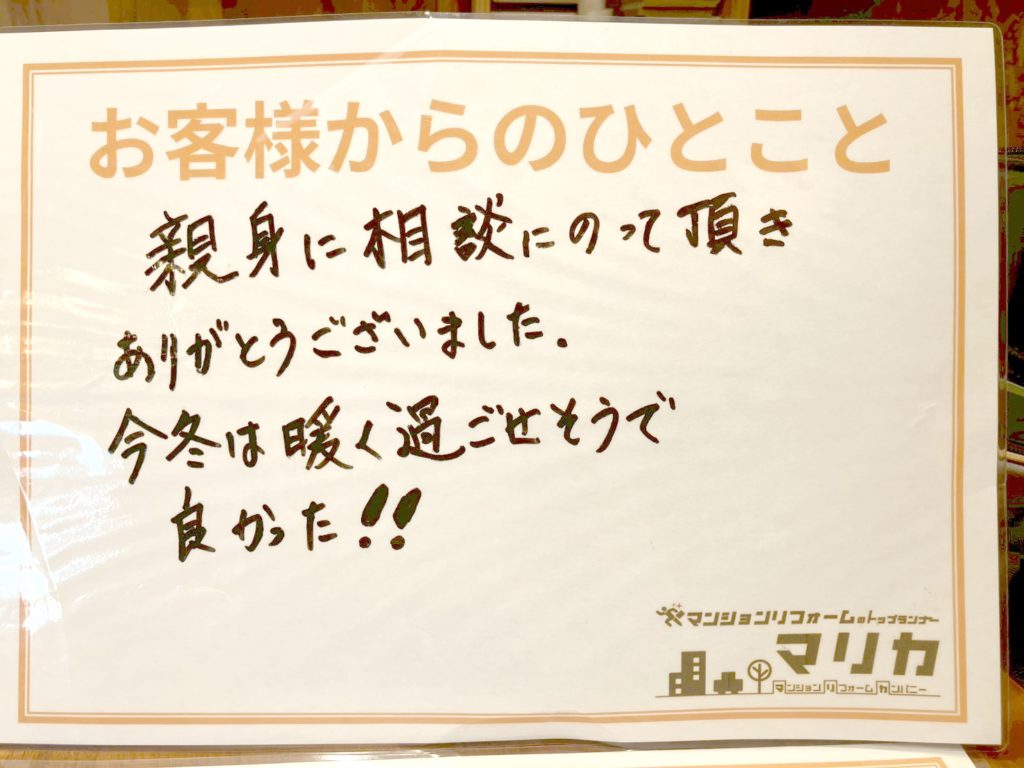 お客様からのひとこと
親身に相談にのって頂き
ありがとうございました.
今冬は暖く過ごせそうで
良かった!!
マンションリフォームのトップランナー
マリカ
マンションリフォームカンパニー